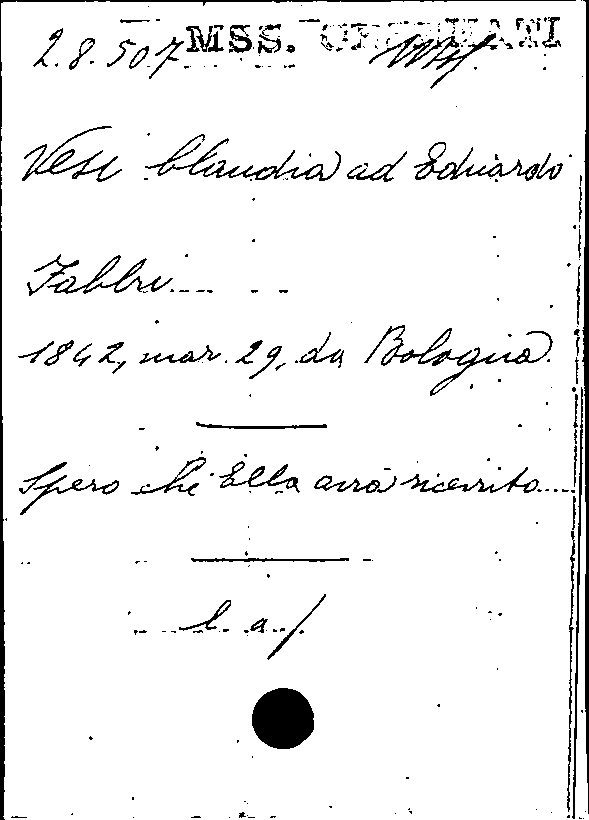 2.8.507 MSS.
Vesi Claudia ad Eduardo
Fabbri
1842, mar. 29, da Bologna
Spero che Ella avrà ricevuto....
l. a./